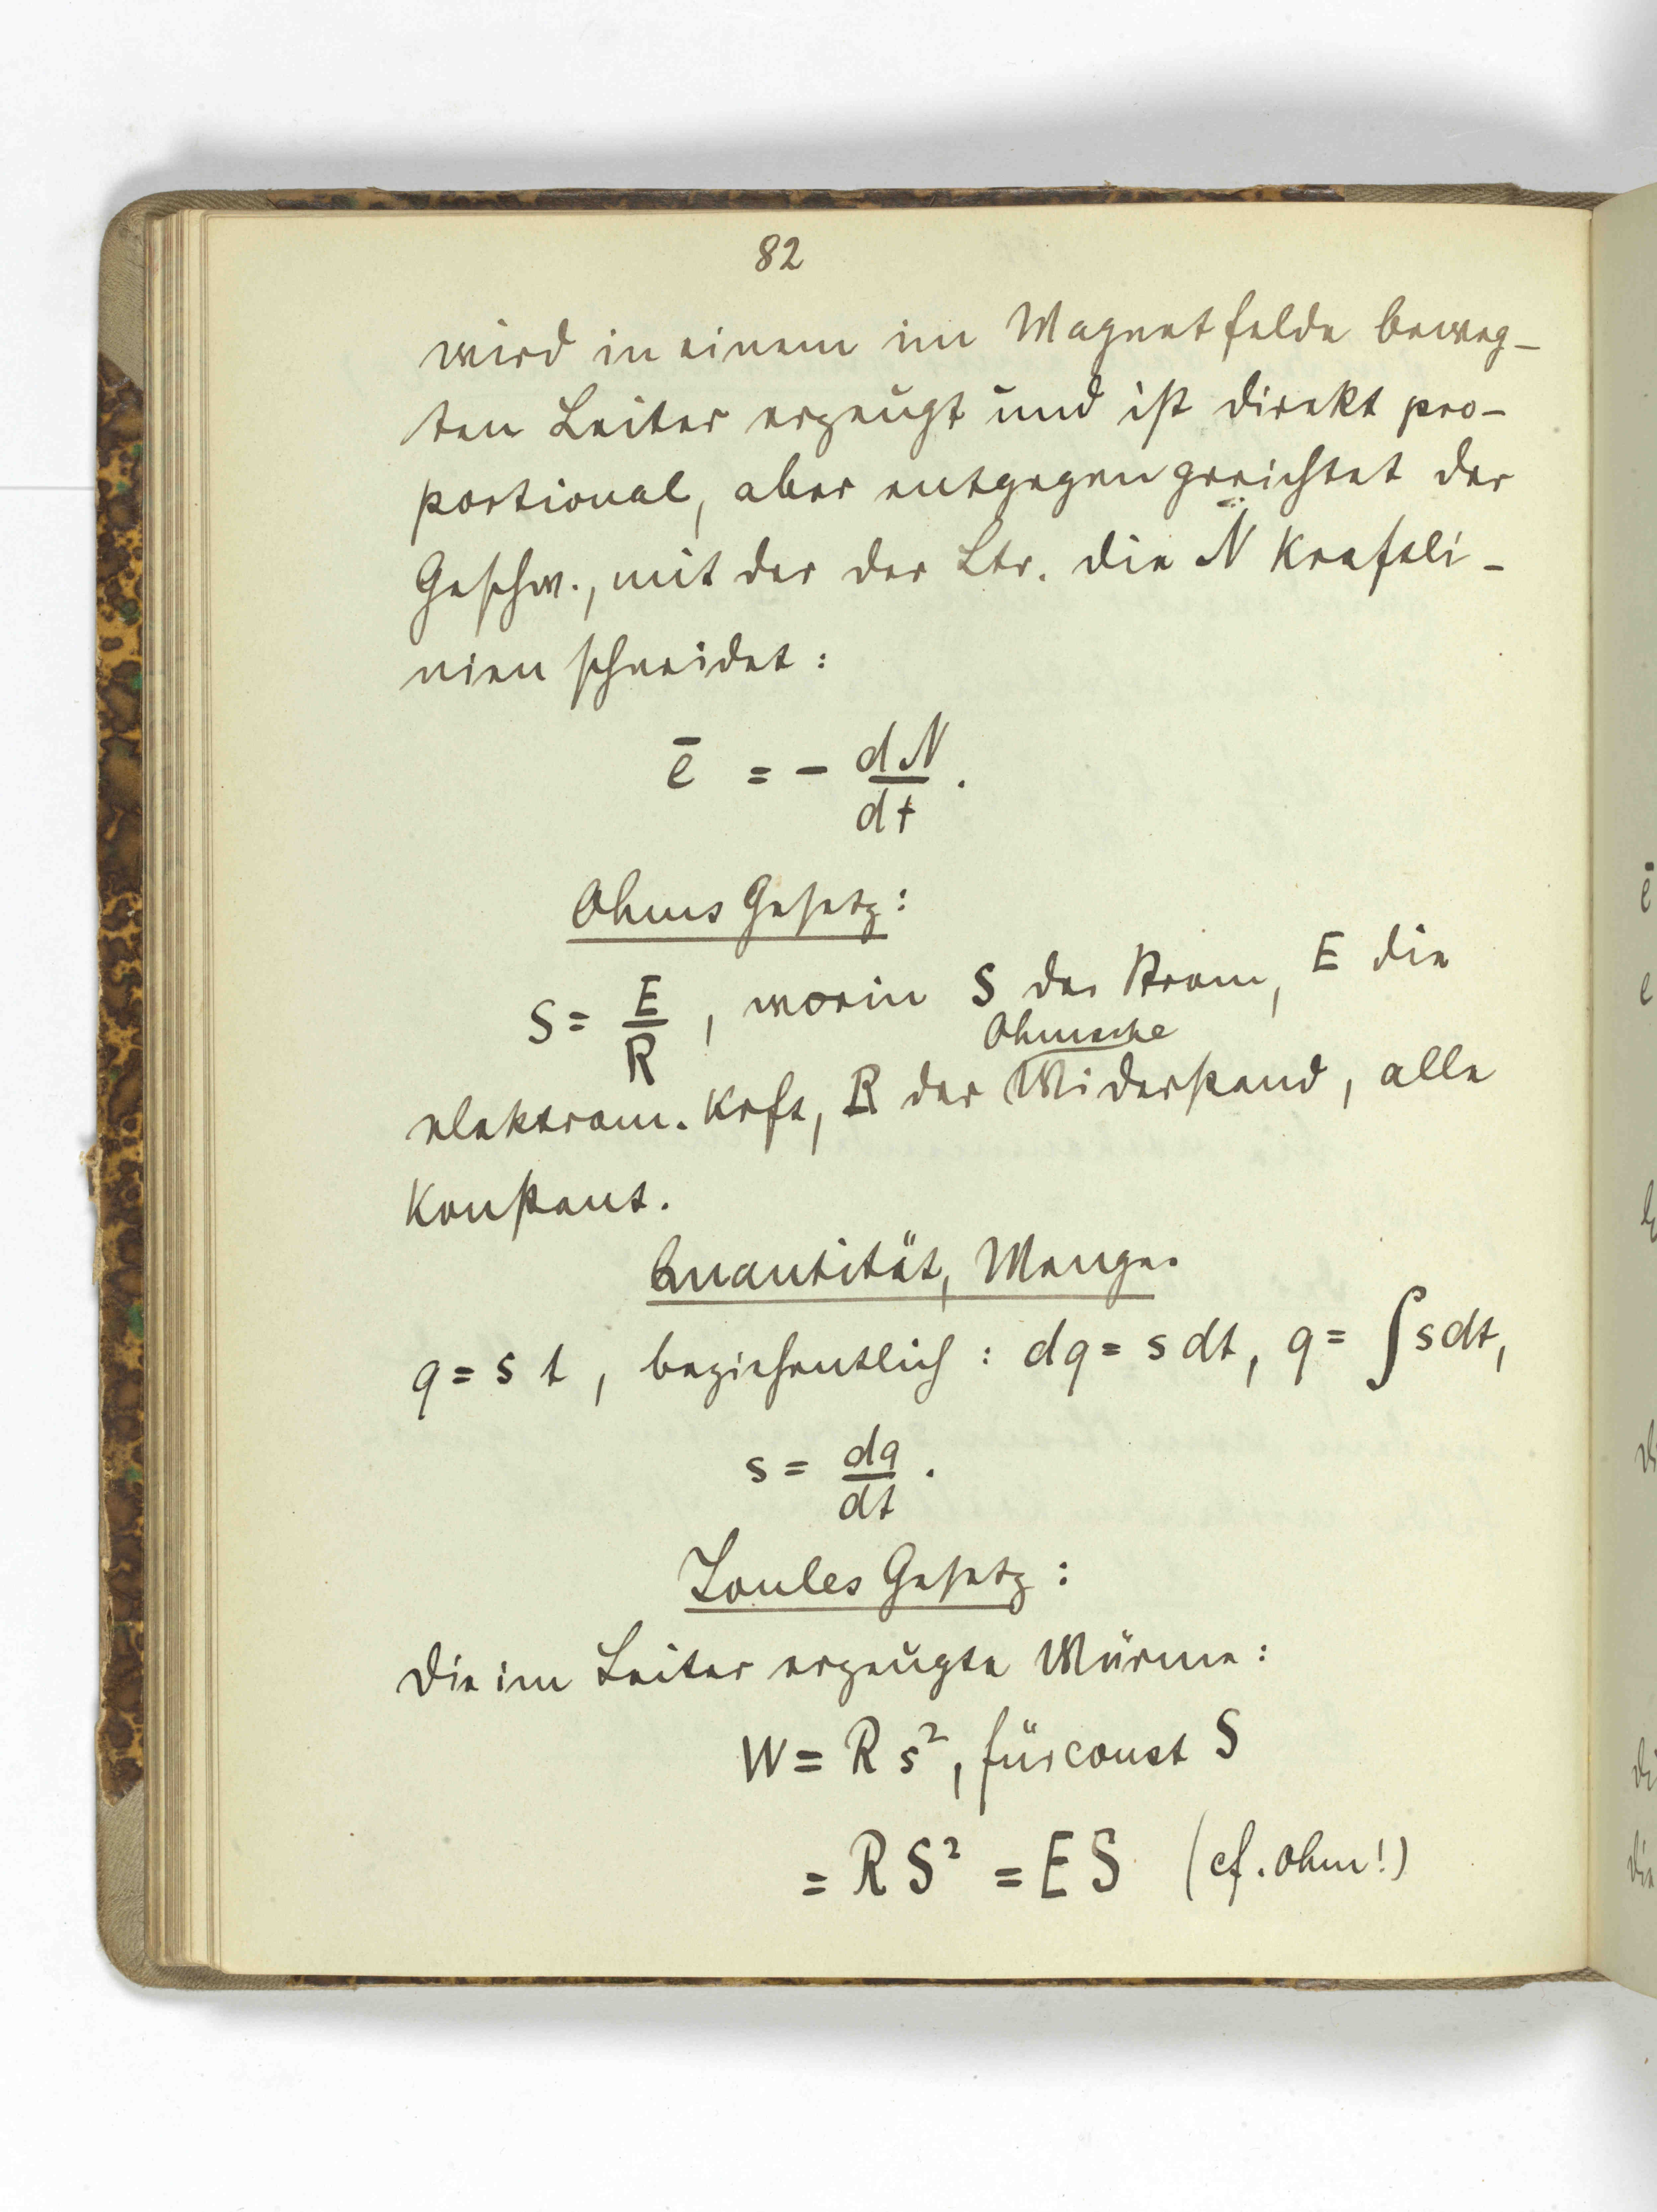 82
wird in einem im Magnetfelde beweg-
ten Leiter erzeugt und ist direkt pro-
portional, aber entgegengerichtet der
Geschw., mit der der Ltr. die N Kraftli-
nien schneidet:
ē = - dN/dt.
Ohms Gesetz:
S = E/R, worin S der Strom, E die
Ohmsche
elektrom. Krft, R der Widerstand, alle
Konstant.
Quantität, Menge.
q = s t, beziehentlich: dq = s dt, q = ∫ s dt,
s = dq/dt.
Joules Gesetz:
Die im Leiter erzeugte Wärme:
W = R s², für const S
= R S² = E S (cf. Ohm!)